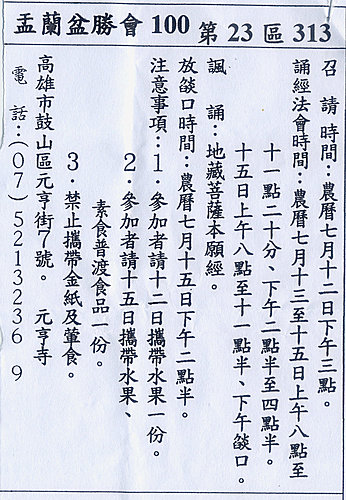 盂蘭盆勝會 100 第 23 區 313
召 請 時間：農曆七月十二日下午三點。
誦經法會時間：農曆七月十三至十五日上午八點至
十一點二十分、下午二點半至四點半。
十五日上午八點至十一點半、下午燄口。
諷 誦：地藏菩薩本願經。
放燄口時間：農曆七月十五日下午二點半。
注意事項：1．參加者請十二日攜帶水果一份。
2．參加者請十五日攜帶水果、
素食普渡食品一份。
3．禁止攜帶金紙及葷食。
高雄市鼓山區元亨街7號。 元亨寺
電 話：（07）5213236 9